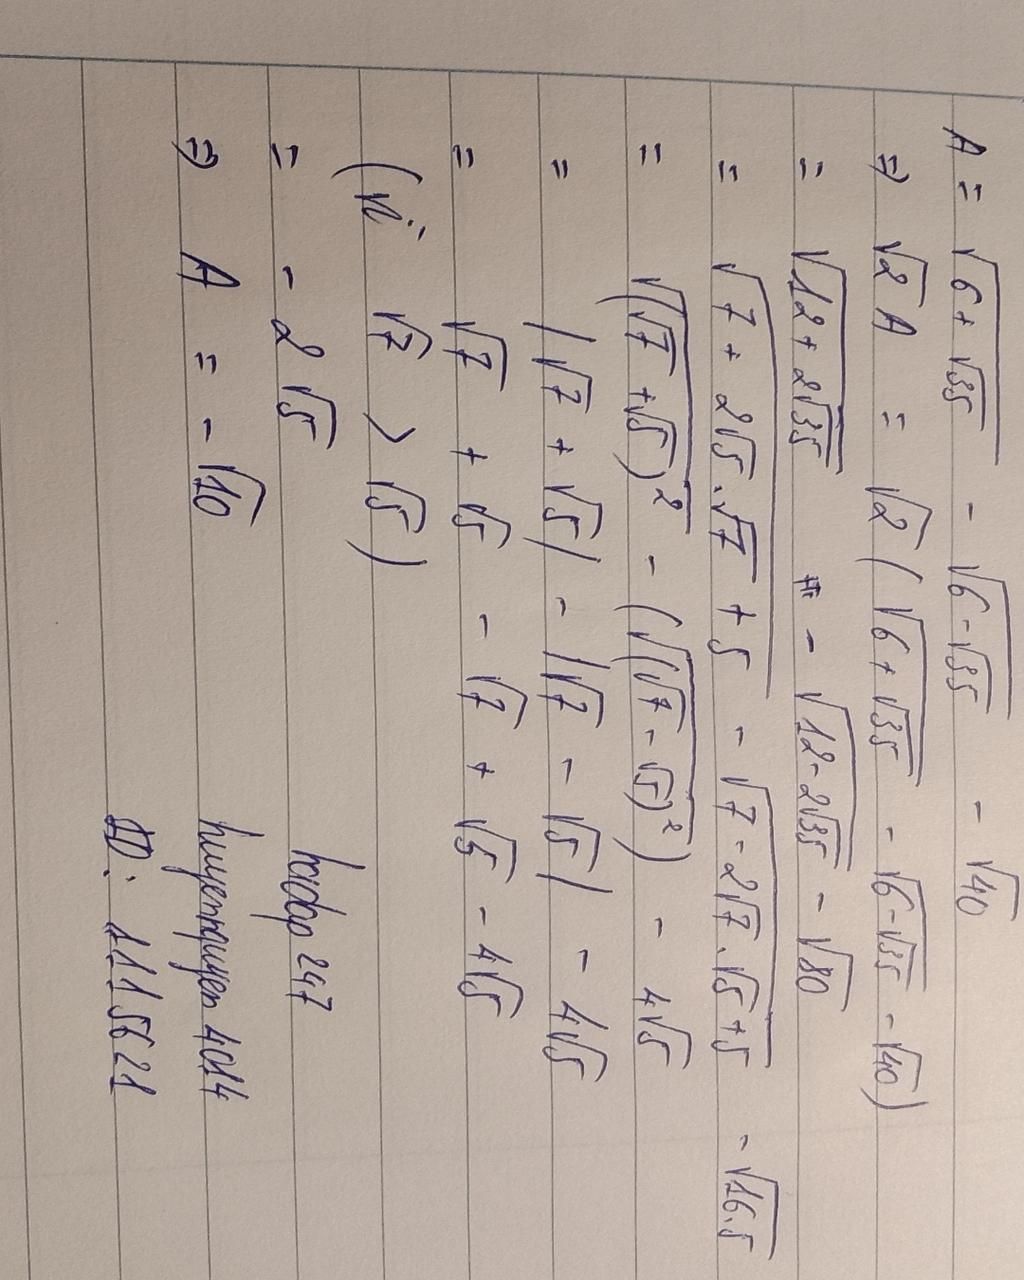 A = √(6 + √35) - √(6 - √35) - √40
⇒ √2 A = √2 (√(6 + √35) - √(6 - √35) - √40)
= √(12 + 2√35) - √(12 - 2√35) - √80
= √(7 + 2√5.√7 + 5) - √(7 - 2√7.√5 + 5) - √(16.5)
= √((√7 + √5)²) - (√((√7 - √5)²)) - 4√5
= |√7 + √5| - |√7 - √5| - 4√5
= √7 + √5 - √7 + √5 - 4√5
(vì √7 > √5)
= - 2√5
⇒ A = - √10
hoidap 247
ID: 1115621